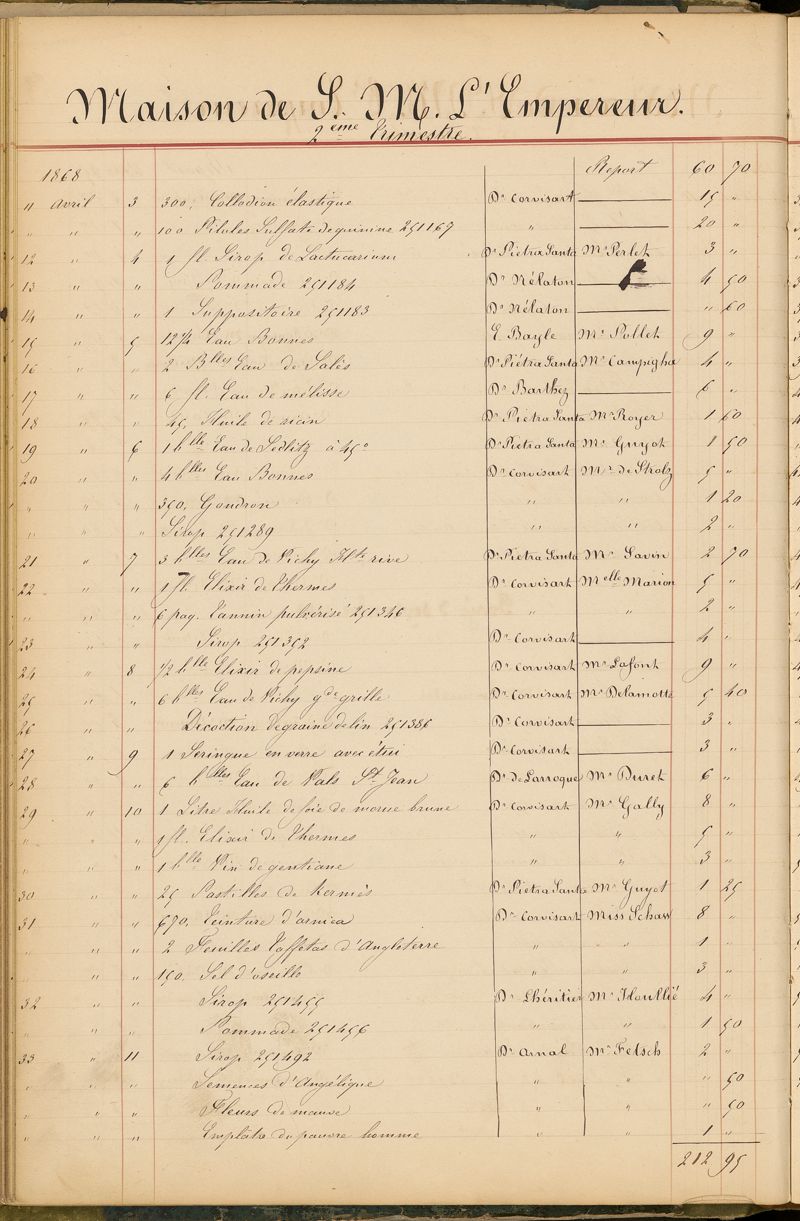 Maison de S. M. L'Empereur.
2ème Trimestre.
1868 Report 60 70
11 Avril 3 300, Collodion élastique Dr Corvisart 15 "
" " " 100 Pilules Sulfate de quinine 251169 " 20 "
12 " 4 1 fl. Sirop de Lactucarium Dr Piétra Santa Mr Perlet 3 "
13 " " Pommade 251184 Dr Nélaton 4 50
14 " " 1 Suppositoire 251183 Dr Nélaton " 60
15 " 5 12 1/2 Eau Bonnes E. Bayle Mr Pollet 9 "
16 " " 2 Blles Eau de Salès Dr Piétra Santa Mr Campegha 4 "
17 " " 6 fl. Eau de mélisse Dr Barthez 6 "
18 " " 45, Huile de ricin Dr Piétra Santa Mr Royer 1 60
19 " 6 1 blle Eau de Sedlitz à 45° Dr Piétra Santa Mr Guyot 1 50
20 " " 4 blles Eau Bonnes Dr Corvisart Mr de Strolz 5 "
" " " 350, Goudron " " 1 20
" " " Sirop 251289 " " 2 "
21 " 7 3 blles Eau de Vichy Hte rive Dr Piétra Santa Mr Savin 2 70
22 " " 1 fl. Elixir de Thermes Dr Corvisart Melle Marion 5 "
" " " 6 paq. Tannin pulvérisé 251346 " " 2 "
23 " " Sirop 251352 Dr Corvisart 4 "
24 " 8 1/2 blle Elixir de pepsine Dr Corvisart Mr Lafont 9 "
25 " " 6 blles Eau de Vichy gde grille Dr Corvisart Mr Delamotte 5 40
26 " " Décoction de graine de lin 251386 Dr Corvisart 3 "
27 " 9 1 Seringue en verre avec étui Dr Corvisart 3 "
28 " " 6 blles Eau de Vals St Jean Dr de Larroque Mr Duret 6 "
29 " 10 1 Litre Huile de foie de morue brune Dr Corvisart Mr Gally 8 "
" " " 1 fl. Elixir de Thermes " " 5 "
" " " 1 blle Vin de gentiane " " 3 "
30 " " 25 Pastilles de Kermès Dr Piétra Santa Mr Guyot 1 25
31 " " 650, Teinture d'arnica Dr Corvisart Miss Schaw 8 "
" " " 2 Feuilles Taffetas d'Angleterre " " 1 "
" " " 150, Sel d'oseille " " 3 "
32 " " Sirop 251455 Dr Lhéritier Mr Houllié 4 "
" " " Pommade 251456 " " 1 50
33 " 11 Sirop 251492 Dr Arnal Mr Fetsch 2 "
" " " Semences d'Angélique " " " 50
" " " Fleurs de mauve " " " 50
" " " Emplâtre du pauvre homme " " 1 "
212 95